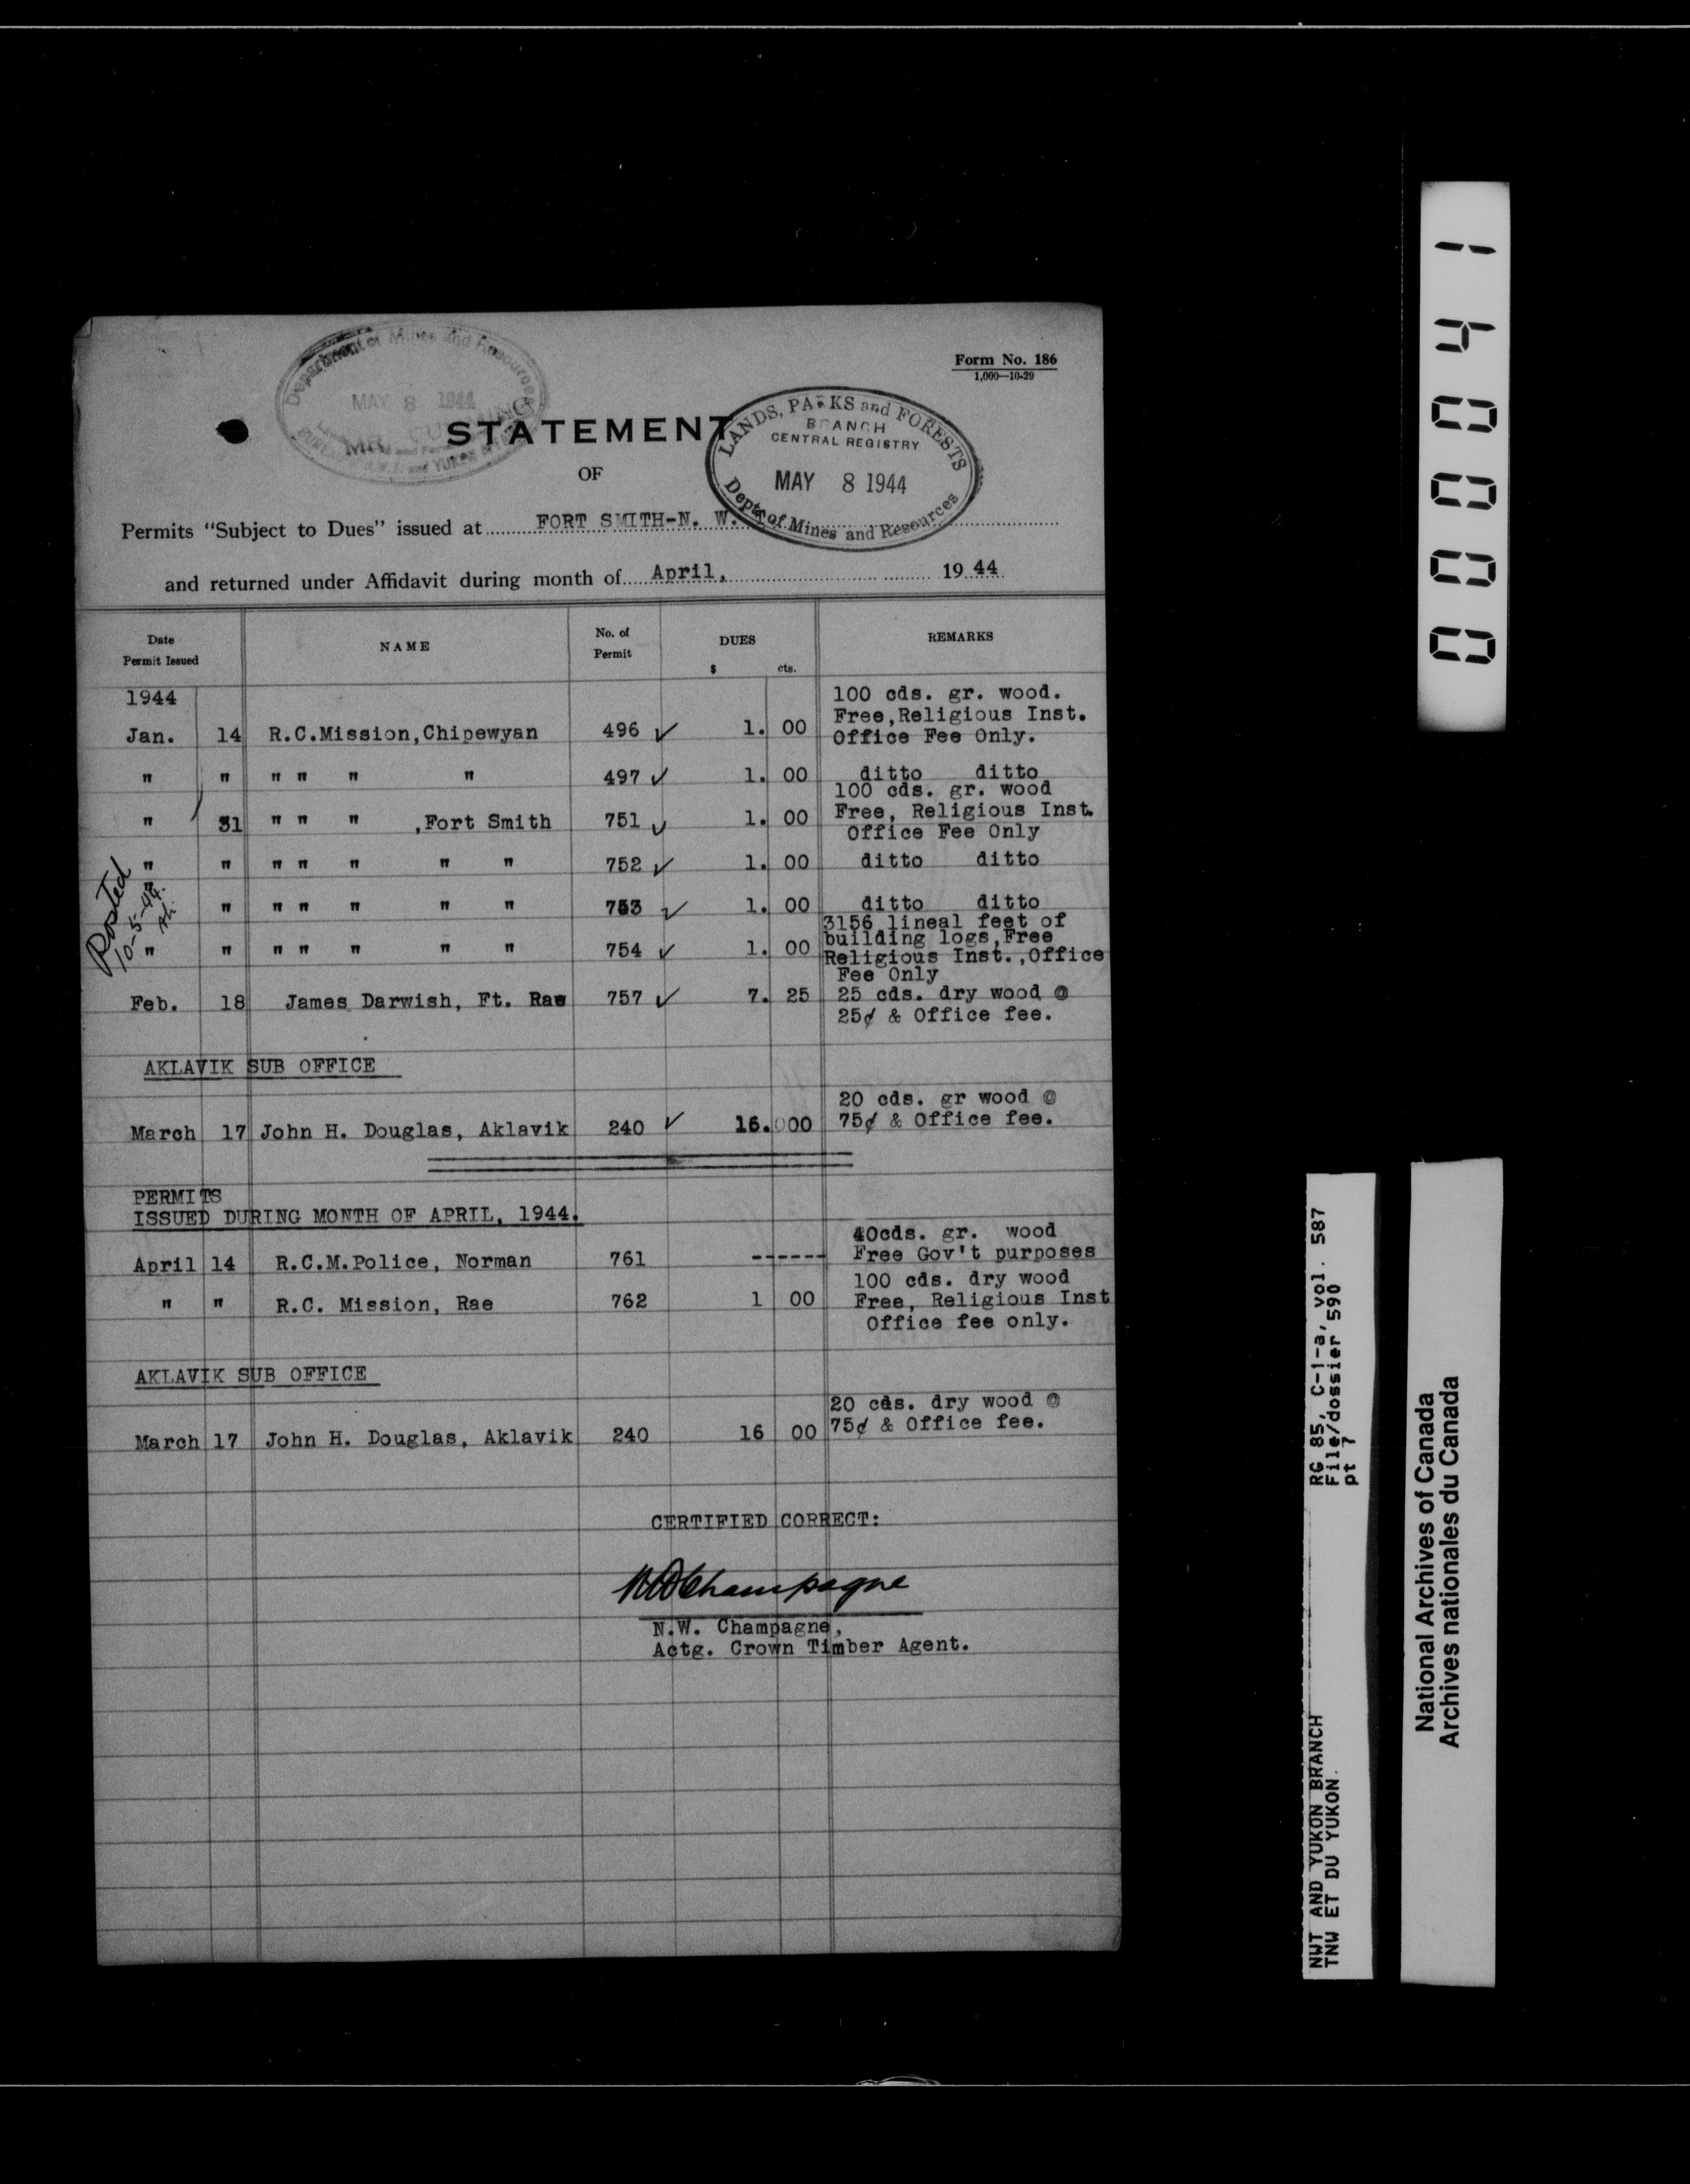 Form No. 186
1,000—10-29
Department of Mines and Resources
MAY 8 1944
MR. CUMMING
BUREAU N.W.T. and YUKON
STATEMENT
LANDS, PARKS and FORESTS
BRANCH
CENTRAL REGISTRY
MAY 8 1944
Dept. of Mines and Resources
OF
Permits "Subject to Dues" issued at FORT SMITH-N. W. T.
and returned under Affidavit during month of April, 19 44
Date Permit Issued NAME No. of Permit DUES $ cts. REMARKS
1944 100 cds. gr. wood.
Free,Religious Inst.
Jan. 14 R.C.Mission,Chipewyan 496 ✓ 1. 00 Office Fee Only.
" " " " " " 497 ✓ 1. 00 ditto ditto
100 cds. gr. wood
" 31 " " " ,Fort Smith 751 ✓ 1. 00 Free, Religious Inst.
Office Fee Only
" " " " " " " 752 ✓ 1. 00 ditto ditto
" " " " " " " 753 ✓ 1. 00 ditto ditto
3156 lineal feet of
building logs,Free
" " " " " " " 754 ✓ 1. 00 Religious Inst.,Office
Fee Only
Feb. 18 James Darwish, Ft. Rae 757 ✓ 7. 25 25 cds. dry wood @
25¢ & Office fee.
Posted
10-5-44
AKLAVIK SUB OFFICE
20 cds. gr wood @
March 17 John H. Douglas, Aklavik 240 ✓ 16. 00 75¢ & Office fee.
PERMITS
ISSUED DURING MONTH OF APRIL, 1944.
40cds. gr. wood
April 14 R.C.M.Police, Norman 761 ------ Free Gov't purposes
100 cds. dry wood
" " R.C. Mission, Rae 762 1 00 Free, Religious Inst
Office fee only.
AKLAVIK SUB OFFICE
20 cds. dry wood @
March 17 John H. Douglas, Aklavik 240 16 00 75¢ & Office fee.
CERTIFIED CORRECT:
NW Champagne
N.W. Champagne,
Actg. Crown Timber Agent.
000041
RG 85, C-1-a, vol. 587
File/dossier 590
pt 7
NWT AND YUKON BRANCH
TNW ET DU YUKON
National Archives of Canada
Archives nationales du Canada